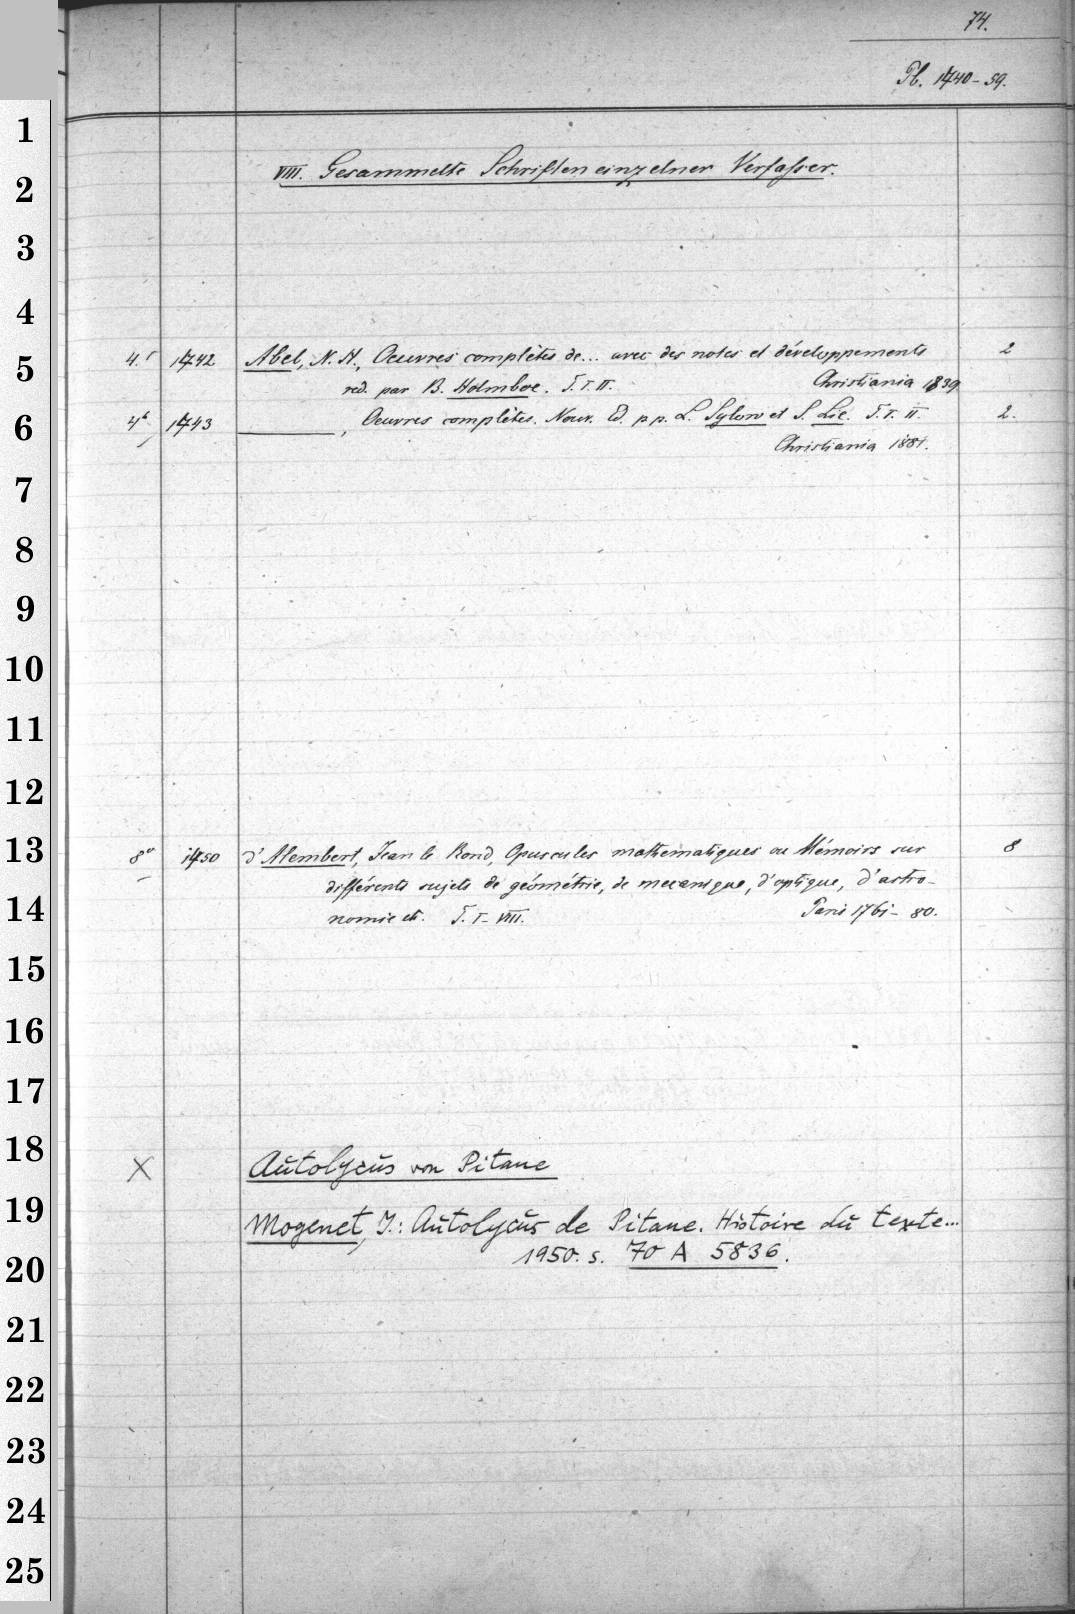 74.
Pb. 1740-59.
VIII. Gesammelte Schriften einzelner Verfasser.
4° 1742 Abel, N. H., Oeuvres complètes de... avec des notes et développements 2
red. par B. Holmboe. T. I. II. Christiania 1839
4° 1743 ———, Oeuvres complètes. Nouv. Ed. p. p. L. Sylow et S. Lie. T. I. II. 2.
Christiania 1881.
8° 1750 d'Alembert, Jean le Rond, Opuscules mathematiques ou Mémoirs sur 8
différents sujets de géométrie, de mecanique, d'optique, d'astro-
nomie etc. T. I-VIII. Paris 1761-80.
X Autolycus von Pitane
Mogenet, J.: Autolycus de Pitane. Histoire du texte...
1950. s. 70 A 5836.
1
2
3
4
5
6
7
8
9
10
11
12
13
14
15
16
17
18
19
20
21
22
23
24
25